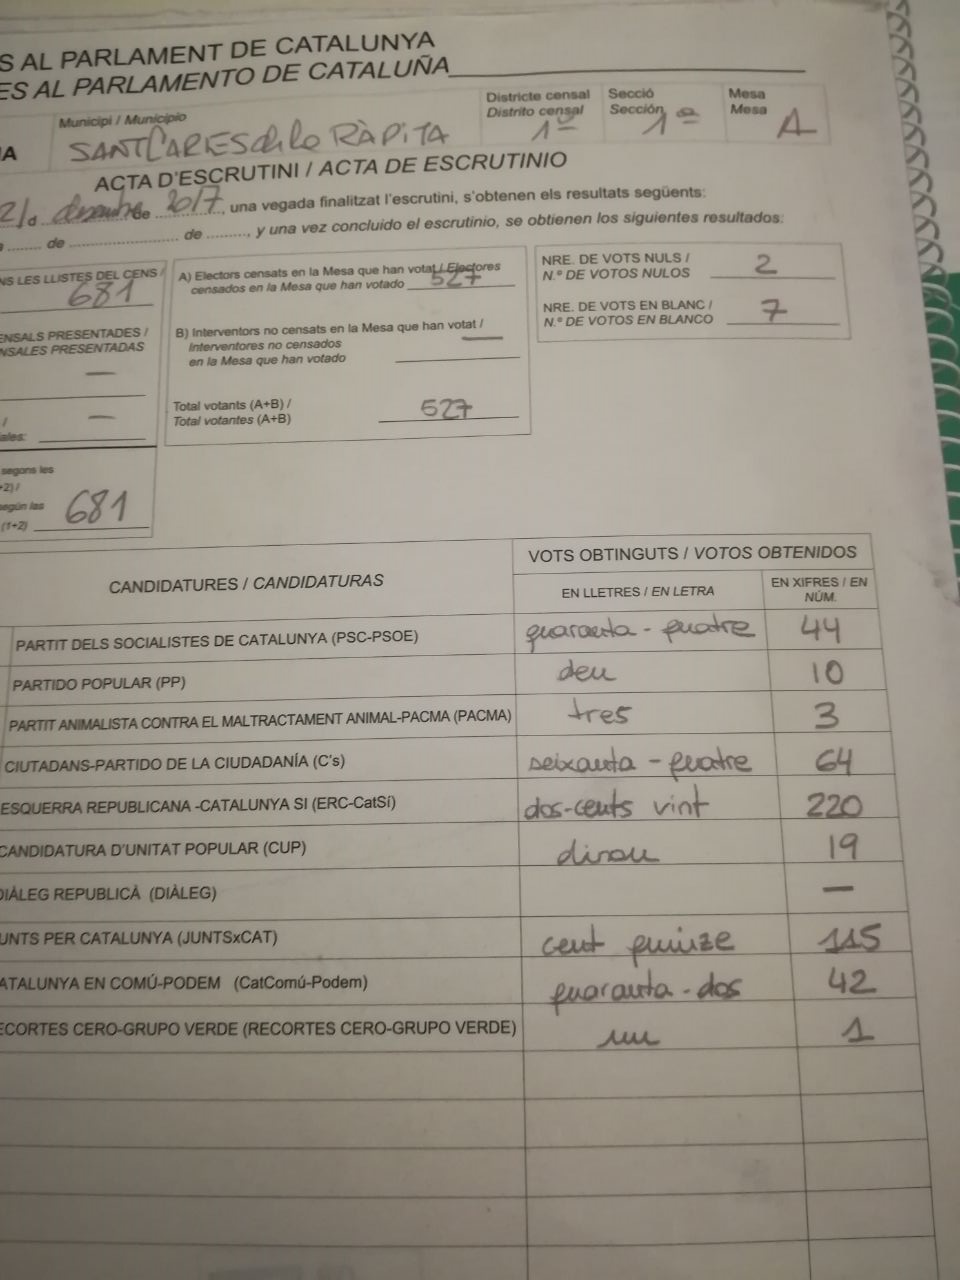 S AL PARLAMENT DE CATALUNYA
ES AL PARLAMENTO DE CATALUÑA
Municipi / Municipio
SANT CARLES de la RÀPITA
Districte censal
Distrito censal
1º
Secció
Sección
1ª
Mesa
Mesa
A
IA
ACTA D'ESCRUTINI / ACTA DE ESCRUTINIO
21 d desembre de 2017, una vegada finalitzat l'escrutini, s'obtenen els resultats següents:
a ........ de ............................ de .........., y una vez concluido el escrutinio, se obtienen los siguientes resultados:
NS LES LLISTES DEL CENS /
681
ENSALS PRESENTADES /
NSALES PRESENTADAS
—
/
—
ales:
segons les
+2) /
egún las
(1+2) 681
A) Electors censats en la Mesa que han votat / Electores
censados en la Mesa que han votado 527
B) Interventors no censats en la Mesa que han votat /
Interventores no censados
en la Mesa que han votado
—
Total votants (A+B) /
Total votantes (A+B) 527
NRE. DE VOTS NULS /
N.º DE VOTOS NULOS 2
NRE. DE VOTS EN BLANC /
N.º DE VOTOS EN BLANCO 7
CANDIDATURES / CANDIDATURAS
VOTS OBTINGUTS / VOTOS OBTENIDOS
EN LLETRES / EN LETRA
EN XIFRES / EN
NÚM.
PARTIT DELS SOCIALISTES DE CATALUNYA (PSC-PSOE) quaranta - quatre 44
PARTIDO POPULAR (PP) deu 10
PARTIT ANIMALISTA CONTRA EL MALTRACTAMENT ANIMAL-PACMA (PACMA) tres 3
CIUTADANS-PARTIDO DE LA CIUDADANÍA (C's) seixanta - quatre 64
ESQUERRA REPUBLICANA -CATALUNYA SI (ERC-CatSí) dos-cents vint 220
CANDIDATURA D'UNITAT POPULAR (CUP) dinou 19
DIÀLEG REPUBLICÀ (DIÀLEG) —
UNTS PER CATALUNYA (JUNTSxCAT) cent quinze 115
ATALUNYA EN COMÚ-PODEM (CatComú-Podem) quaranta - dos 42
ECORTES CERO-GRUPO VERDE (RECORTES CERO-GRUPO VERDE) un 1